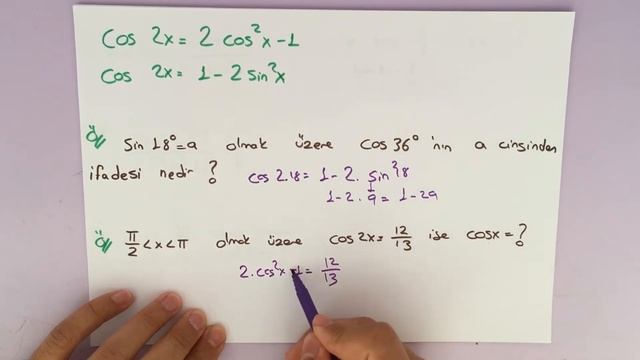 Cos 2x = 2 cos²x - 1
Cos 2x = 1 - 2 sin²x
Ö// Sin 18° = a olmak üzere Cos 36° 'nin a cinsinden
ifadesi nedir ? cos 2.18 = 1 - 2. sin²18
1 - 2. a = 1 - 2a
Ö// π/2 < x < π olmak üzere cos 2x = 12/13 ise cosx = ?
2. cos²x - 1 = 12/13